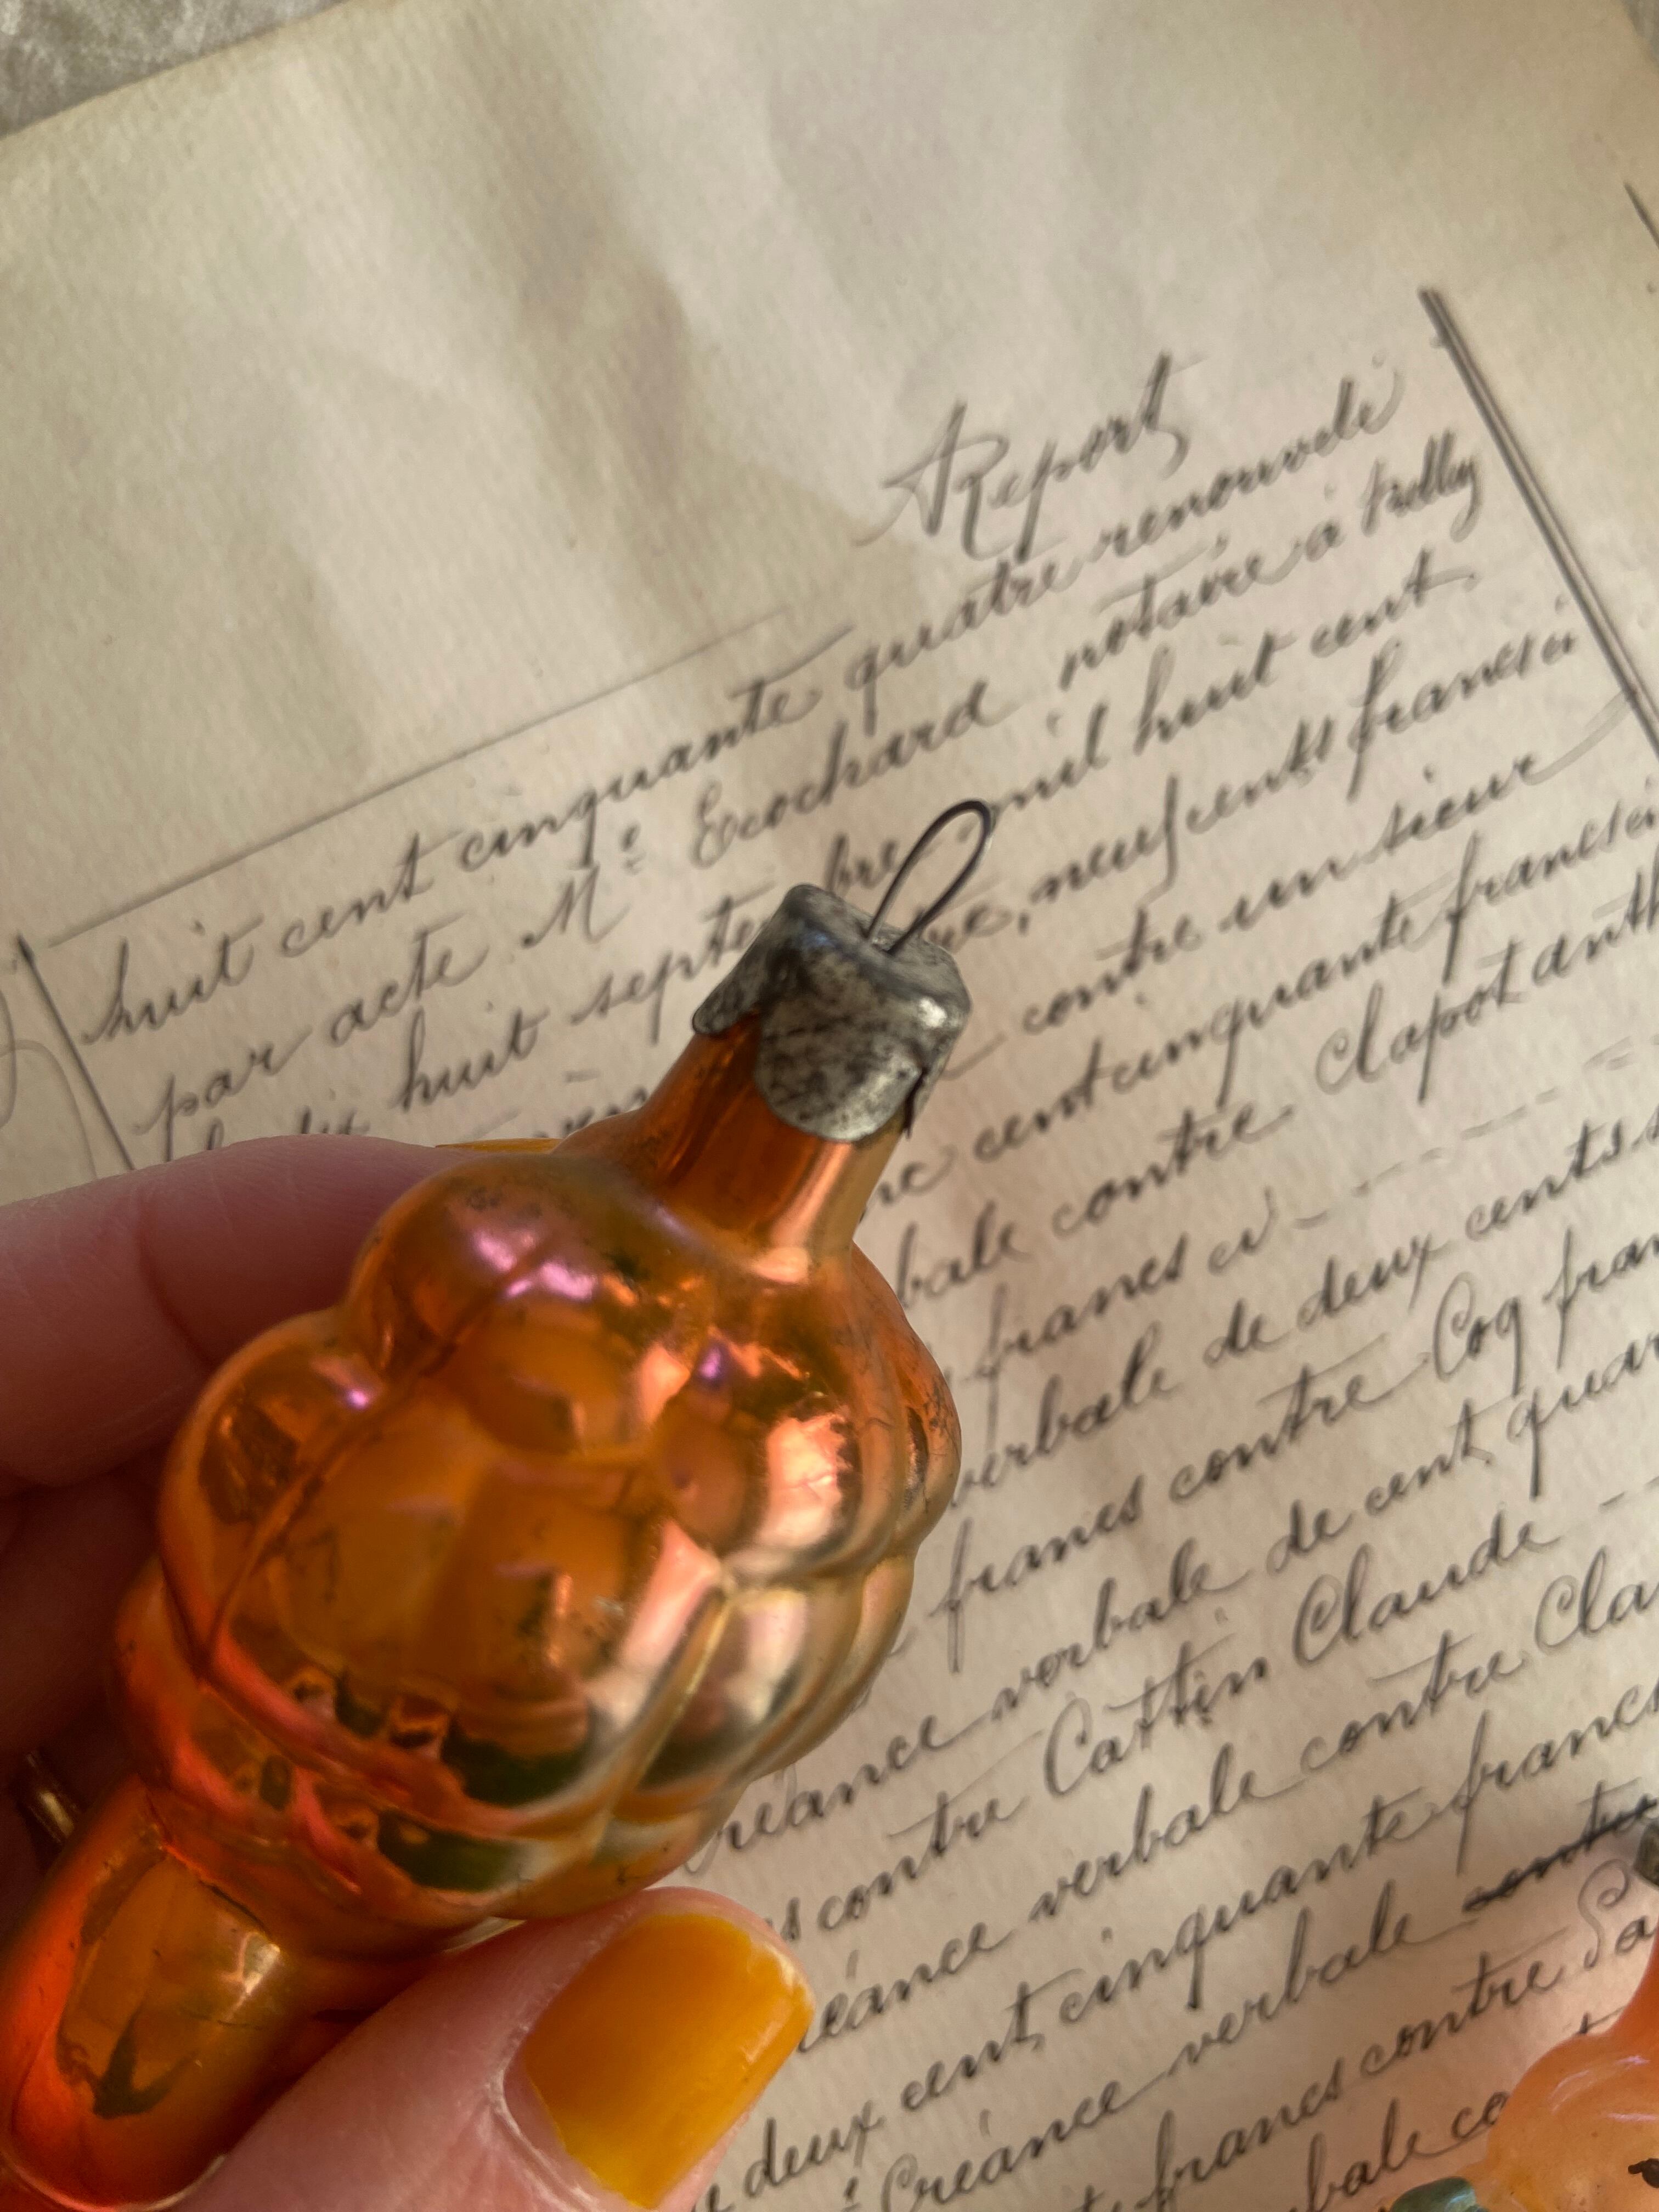 Report
huit cent cinquante quatre renouvelé
par acte Me Ecochard notaire à
huit septe bre mil huit cent
neuf cents francs ci
contre un sieur
cent cinquante francs ci
bale contre Clapot
francs ci
verbale de deux cents
francs contre Coq fran
verbale de cent quar
contre Cattin Claude
réance verbale contre Cla
deux cent cinquante francs
Créance verbale contre
francs contre Sa
bale co